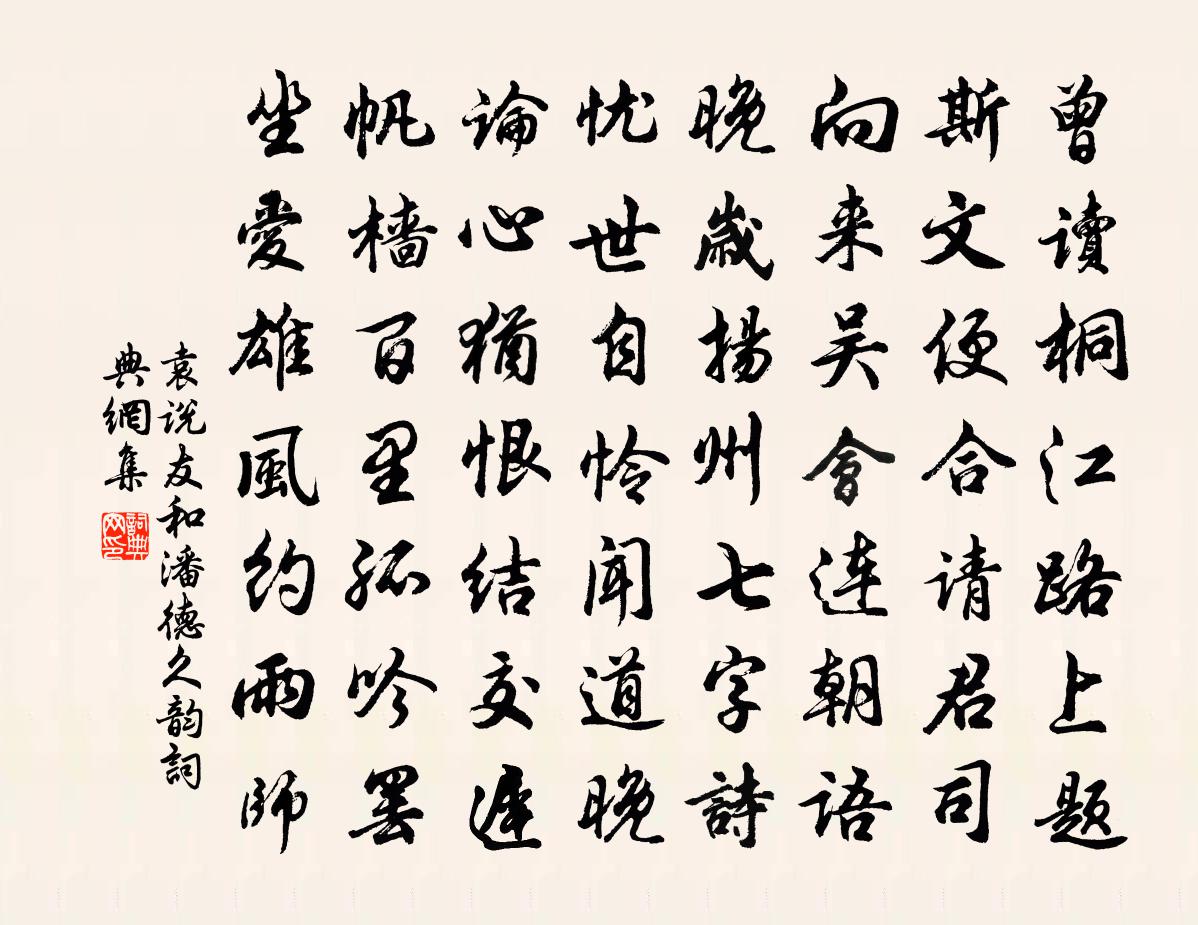 曾讀桐江路上题
斯文便合请君司
向来吴會连朝語
晚歲揚州七字詩
忧世自怜闻道晚
論心猶恨结交遲
帆樯百里孤吟罢
坐愛雄風约雨师
袁说友和潘德久韵詞
典網集
詞典
网印